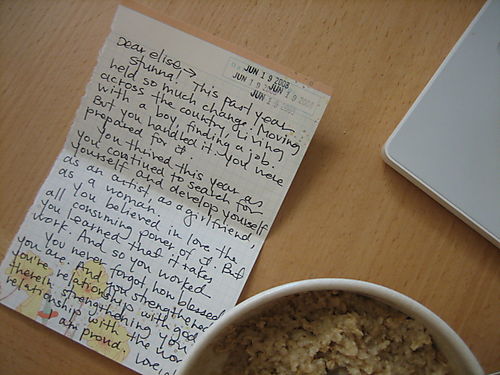 Dear elise →
JUN 19 2008
JUN 19 2008
JUN 19 2008
stunna! This past year
held so much change. Moving
across the country, living
with a boy, finding a job.
But you handled it. You were
prepared for it.
You thrived this year as
you continued to search for
yourself and develop yourself
as an artist as a girlfriend
as a woman.
all you believed in love the
you consuming power of it. But
you learned that it takes
work. And so you worked
You never forgot how blessed
you are. And for strengthened
you're relationship with god
therein strengthening your
relationship with the world
I am proud. Love,